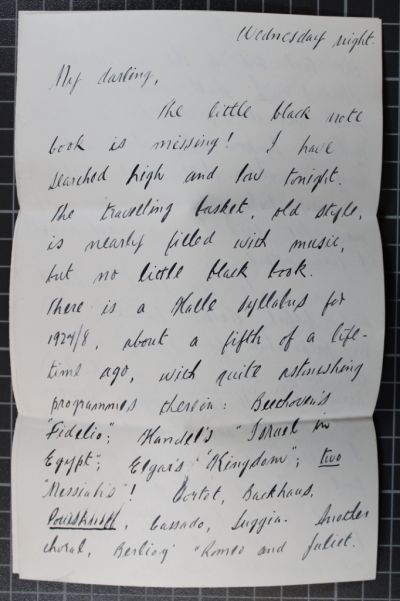 Wednesday night.
My darling,
The little black note
book is missing! I have
searched high and low tonight.
The travelling basket, old style,
is nearly filled with music,
but no little black book.
There is a Halle syllabus for
1927/8, about a fifth of a life-
time ago, with quite astonishing
programmes therein: Beethoven's
"Fidelio"; Handel's "Israel in
Egypt"; Elgar's "Kingdom"; two
"Messiahs"! Cortot, Backhaus,
Cassado, Suggia. Another
choral, Berlioz' "Romeo and Juliet.